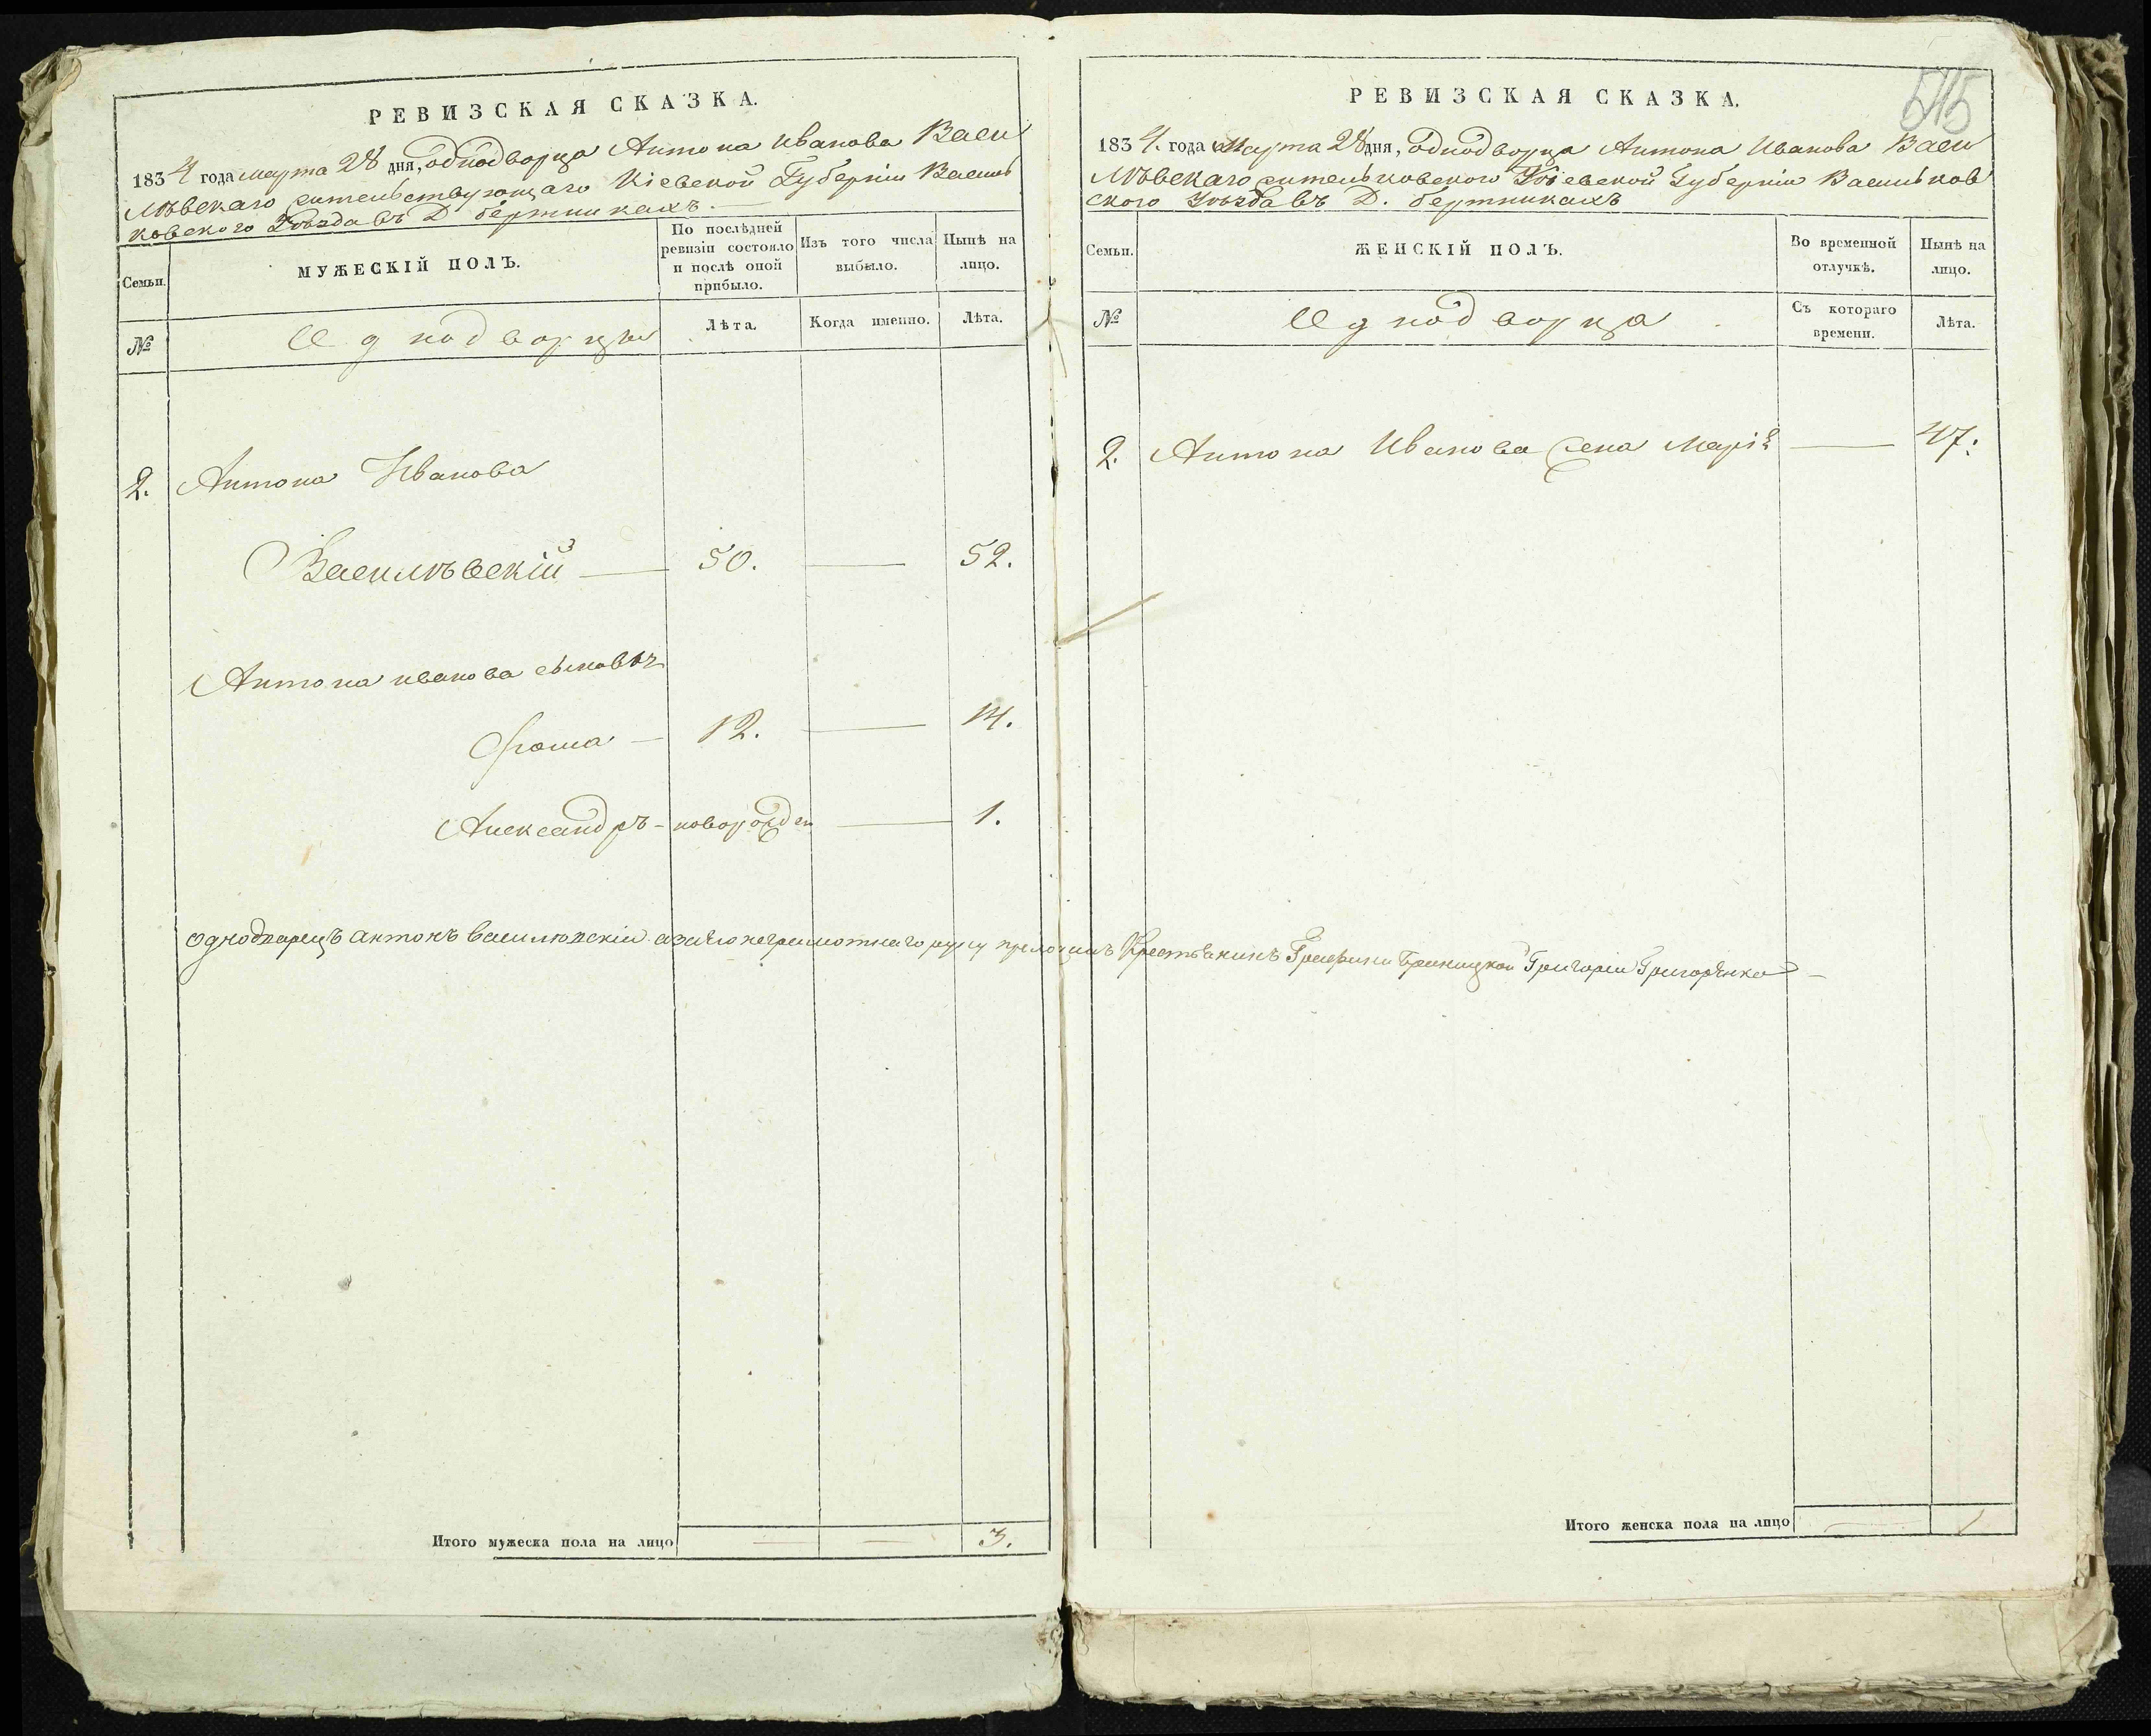 РЕВИЗСКАЯ СКАЗКА.
1834 года марта 28 дня, однодворца Антона Иванова Васи
лѣвскаго жительствующаго Кіевской Губерніи Василь
ковского Уѣзда въ Д бертникахъ.
Семьи.
МУЖЕСКІЙ ПОЛЪ.
По послѣдней ревизіи состояло и послѣ оной прибыло.
Изъ того числа выбыло.
Нынѣ на лицо.
№
Однодворцы
Лѣта.
Когда именно.
Лѣта.
2. Антона Иванова
Василѣвскій — 50. — 52.
Антона иванова сыновъя
Фома — 12. — 14.
Александръ - новорожден — 1.
однодварецъ антонъ василювскій азаего неграмотнаго руку преложилъ Крестьянинъ Графини Браницкой Григорій Григорѣнко —
Итого мужеска пола на лицо — — 3.
515
РЕВИЗСКАЯ СКАЗКА.
1834. года Марта 28 дня, однодворца Антона Иванова Васи
лѣвскаго Кіевской Губерніи Васильков
ского Уѣзда въ Д. бертникахъ
Семьи.
ЖЕНСКІЙ ПОЛЪ.
Во временной отлучкѣ.
Нынѣ на лицо.
№
Однодворца
Съ котораго времени.
Лѣта.
2. Антона Иванова жена Марія — 47.
Итого женска пола на лицо — 1